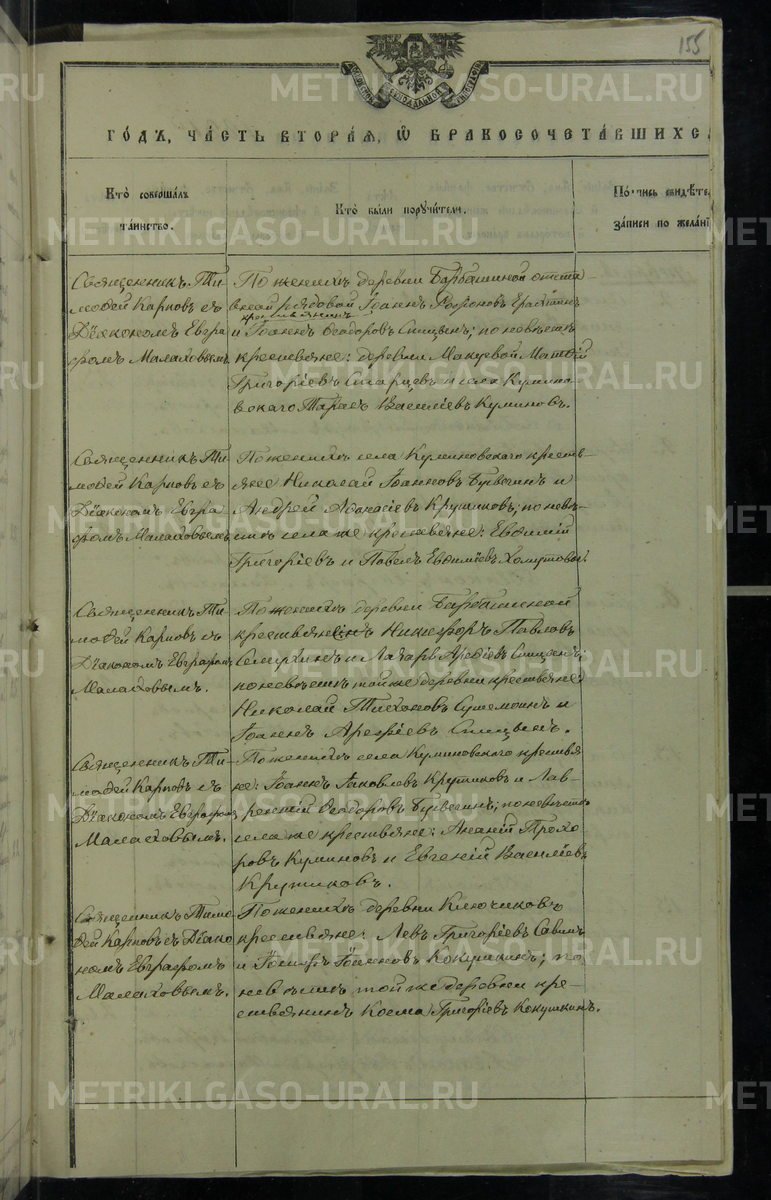 155
ГОДЪ, ЧАСТЬ ВТОРАЯ, Ѡ БРАКОСОЧЕТАВШИХСѦ
Кто совершалъ
таинство.
Кто были поручители.
Подпись свидѣте
записи по желанї
Священникъ Ти-
мофей Карповъ съ
Дїакономъ Евгра-
фомъ Малаховымъ
По женихѣ деревни Барбашиной отстав-
ной рядовой Іоаннъ Родіоновъ
крестьянинъ
и Іоаннъ Ѳеодоровъ Спицынъ; по невѣстѣ
крестьяне: деревни Макуевой Матвѣй
Григоріевъ Старцевъ и села Кумино-
вскаго Тарасъ Василіевъ Куминовъ.
Священникъ Ти-
мофей Карповъ съ
Дїакономъ Евгра-
фомъ Малаховымъ
По женихѣ села Куминовскаго кресть-
яне Николай Іоанновъ и
Андрей Аѳанасіевъ Крутиковъ; по невѣ-
стѣ села же крестьяне: Евѳимій
Григоріевъ и Павелъ Евѳиміевъ Хомутовы.
Священникъ Ти-
мофей Карповъ съ
Дїакономъ Евграфомъ
Малаховымъ.
По женихѣ деревни Барбашиной
крестьянинъ Никифоръ Павловъ
и Лазарь Спицынъ;
по невѣстѣ той же деревни крестьяне
Николай Тихоновъ и
Іоаннъ Спицынъ.
Священникъ Ти-
мофей Карповъ съ
Дїакономъ Евграфомъ
Малаховымъ.
По женихѣ села Куминовскаго крестья-
не: Іоаннъ Іаковлевъ Крутиковъ и Лав-
рентій Ѳеодоровъ; по невѣстѣ
села же крестьяне: Ананій Прохо-
ровъ Куминовъ и Евгеній Василіевъ
Крутиковъ.
Священникъ Тимо-
фей Карповъ съ Дїако-
номъ Евграфомъ
Малаховымъ.
По женихѣ деревни Ключиковъ
крестьяне: Левъ Григоріевъ Савинъ
и Іосифъ Іоанновъ Кокушкинъ; по
невѣстѣ той же деревни кре-
стьянинъ Косма Григоріевъ Кокушкинъ.
METRIKI.GASO-URAL.RU